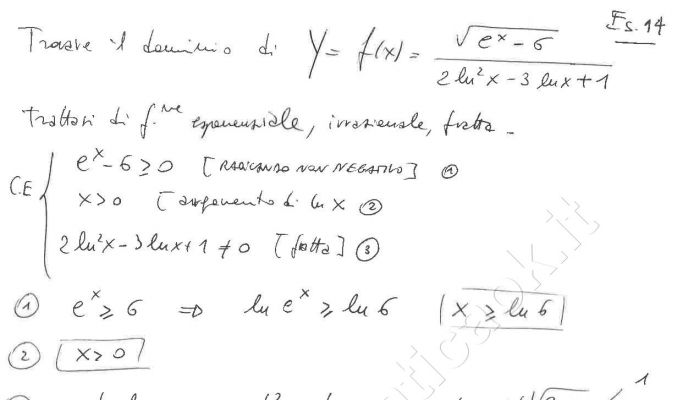 Es. 14
Trovare il dominio di y = f(x) = √(e^x - 6) / (2 ln²x - 3 ln x + 1)
trattasi di f.ne esponenziale, irrazionale, fratta.
C.E { e^x - 6 ≥ 0 [RADICANDO NON NEGATIVO] ①
x > 0 [argomento di ln x ②
2 ln²x - 3 ln x + 1 ≠ 0 [fratta] ③
① e^x ≥ 6 ⇒ ln e^x ≥ ln 6 | x ≥ ln 6 |
② | x > 0 |
1